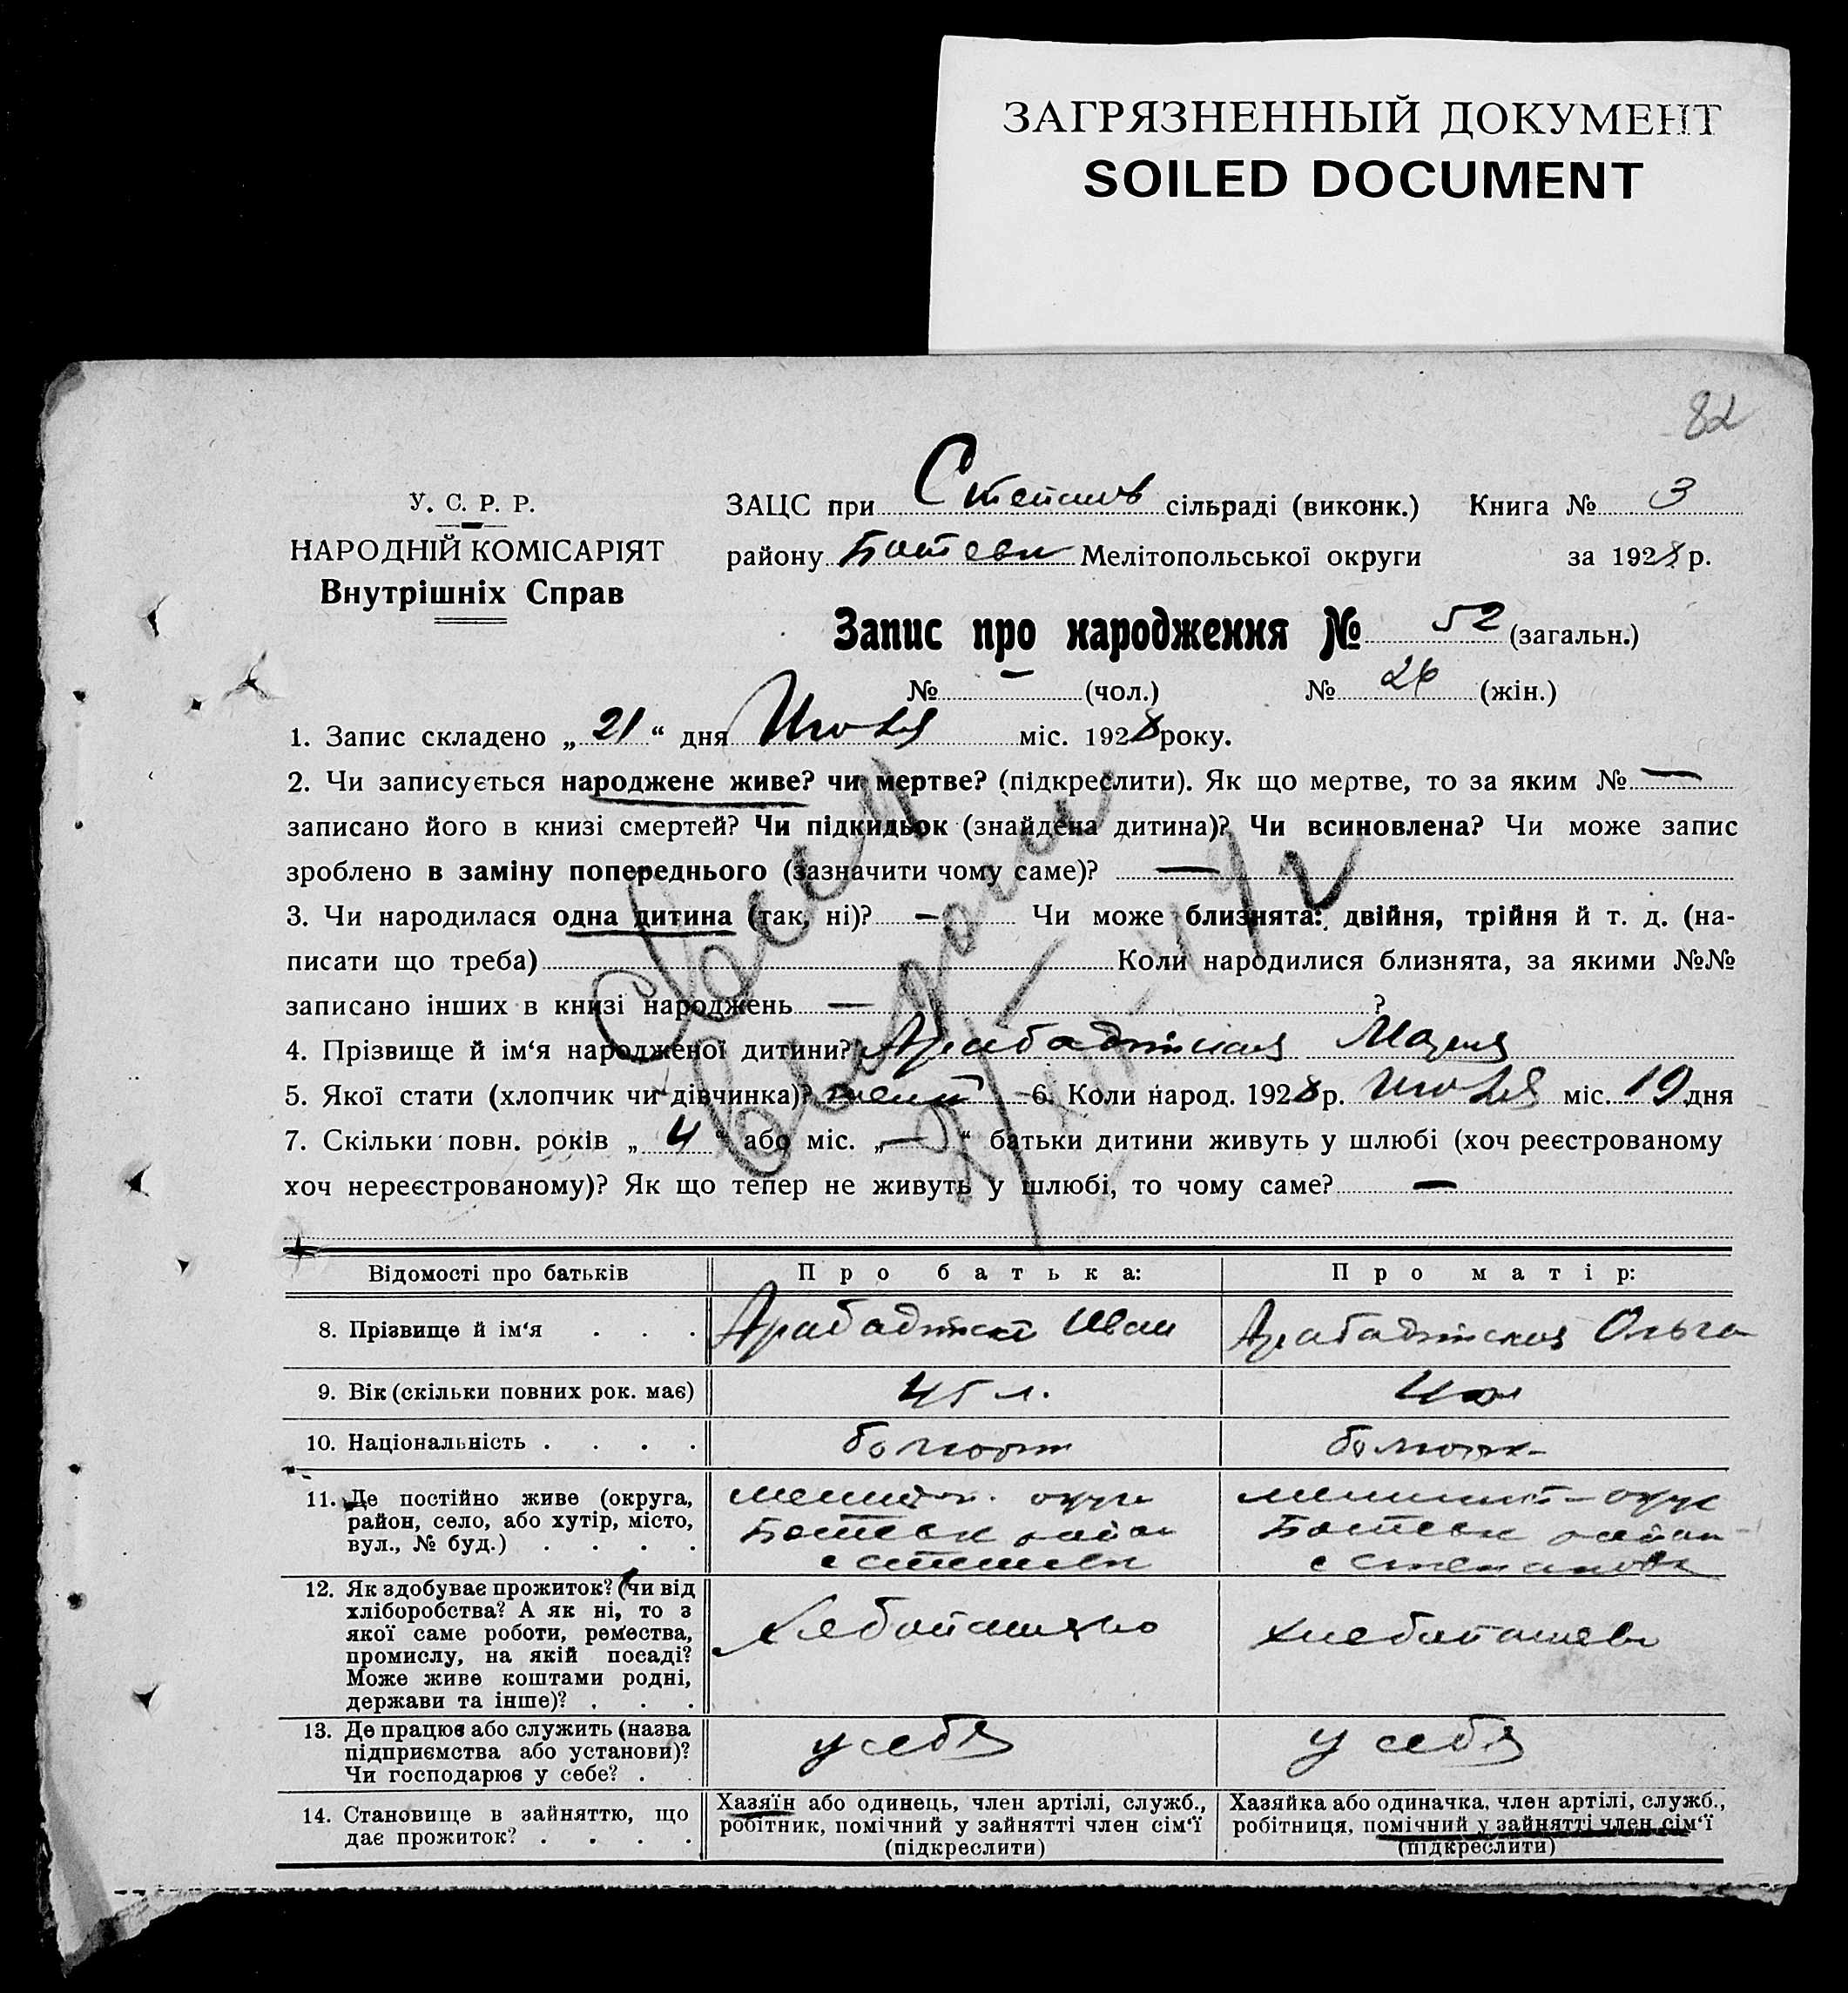 ЗАГРЯЗНЕННЫЙ ДОКУМЕНТ
SOILED DOCUMENT
82
У. С. Р. Р.
НАРОДНІЙ КОМІСАРІЯТ
Внутрішніх Справ
ЗАЦС при Степанов сільраді (виконк.) Книга № 3
району Ботевск Мелітопольської округи за 1928 р.
Запис про народження № 52 (загальн.)
№ — (чол.) № 26 (жін.)
1. Запис складено „ 21 “ дня Июля міс. 1928 року.
2. Чи записується народжене живе? чи мертве? (підкреслити). Як що мертве, то за яким № —
записано його в книзі смертей? Чи підкидьок (знайдена дитина)? Чи всиновлена? Чи може запис
зроблено в заміну попереднього (зазначити чому саме)? —
3. Чи народилася одна дитина (так, ні)? — Чи може близнята: двійня, трійня й т. д. (на-
писати що треба) Коли народилися близнята, за якими №№
записано інших в книзі народжень — ?
4. Прізвище й ім‘я народженої дитини? Арабаджиская Мария
5. Якої стати (хлопчик чи дівчинка)? женск 6. Коли народ. 1928 р. Июля міс. 19 дня
7. Скільки повн. років „ 4 “ або міс. „ — “ батьки дитини живуть у шлюбі (хоч реєстрованому
хоч нереєстрованому)? Як що тепер не живуть у шлюбі, то чому саме? —
Відомості про батьків Про батька: Про матір:
8. Прізвище й ім‘я . . . Арабаджиски Иван Арабаджиская Ольга
9. Вік (скільки повних рок. має) 45 л. 40 л
10. Національність . . . .
11. Де постійно живе (округа,
район, село, або хутір, місто,
вул., № буд.) . . . .
Мелитоп. округ
Ботевск район
с Степановк
Мелитоп округ
Ботевск район
с Степановк
12. Як здобуває прожиток? (чи від
хліборобства? А як ні, то з
якої саме роботи, ремества,
промислу, на якій посаді?
Може живе коштами родні,
держави та інше)? . . .
Хлебопашество Хлебопашеств
13. Де працює або служить (назва
підприємства або установи)?
Чи господарює у себе? . .
у себя у себя
14. Становище в зайняттю, що
дає прожиток? . . . .
Хазяїн або одинець, член артілі, служб.,
робітник, помічний у зайнятті член сім‘ї
(підкреслити)
Хазяйка або одиначка, член артілі, служб.,
робітниця, помічний у зайнятті член сім‘ї
(підкреслити)